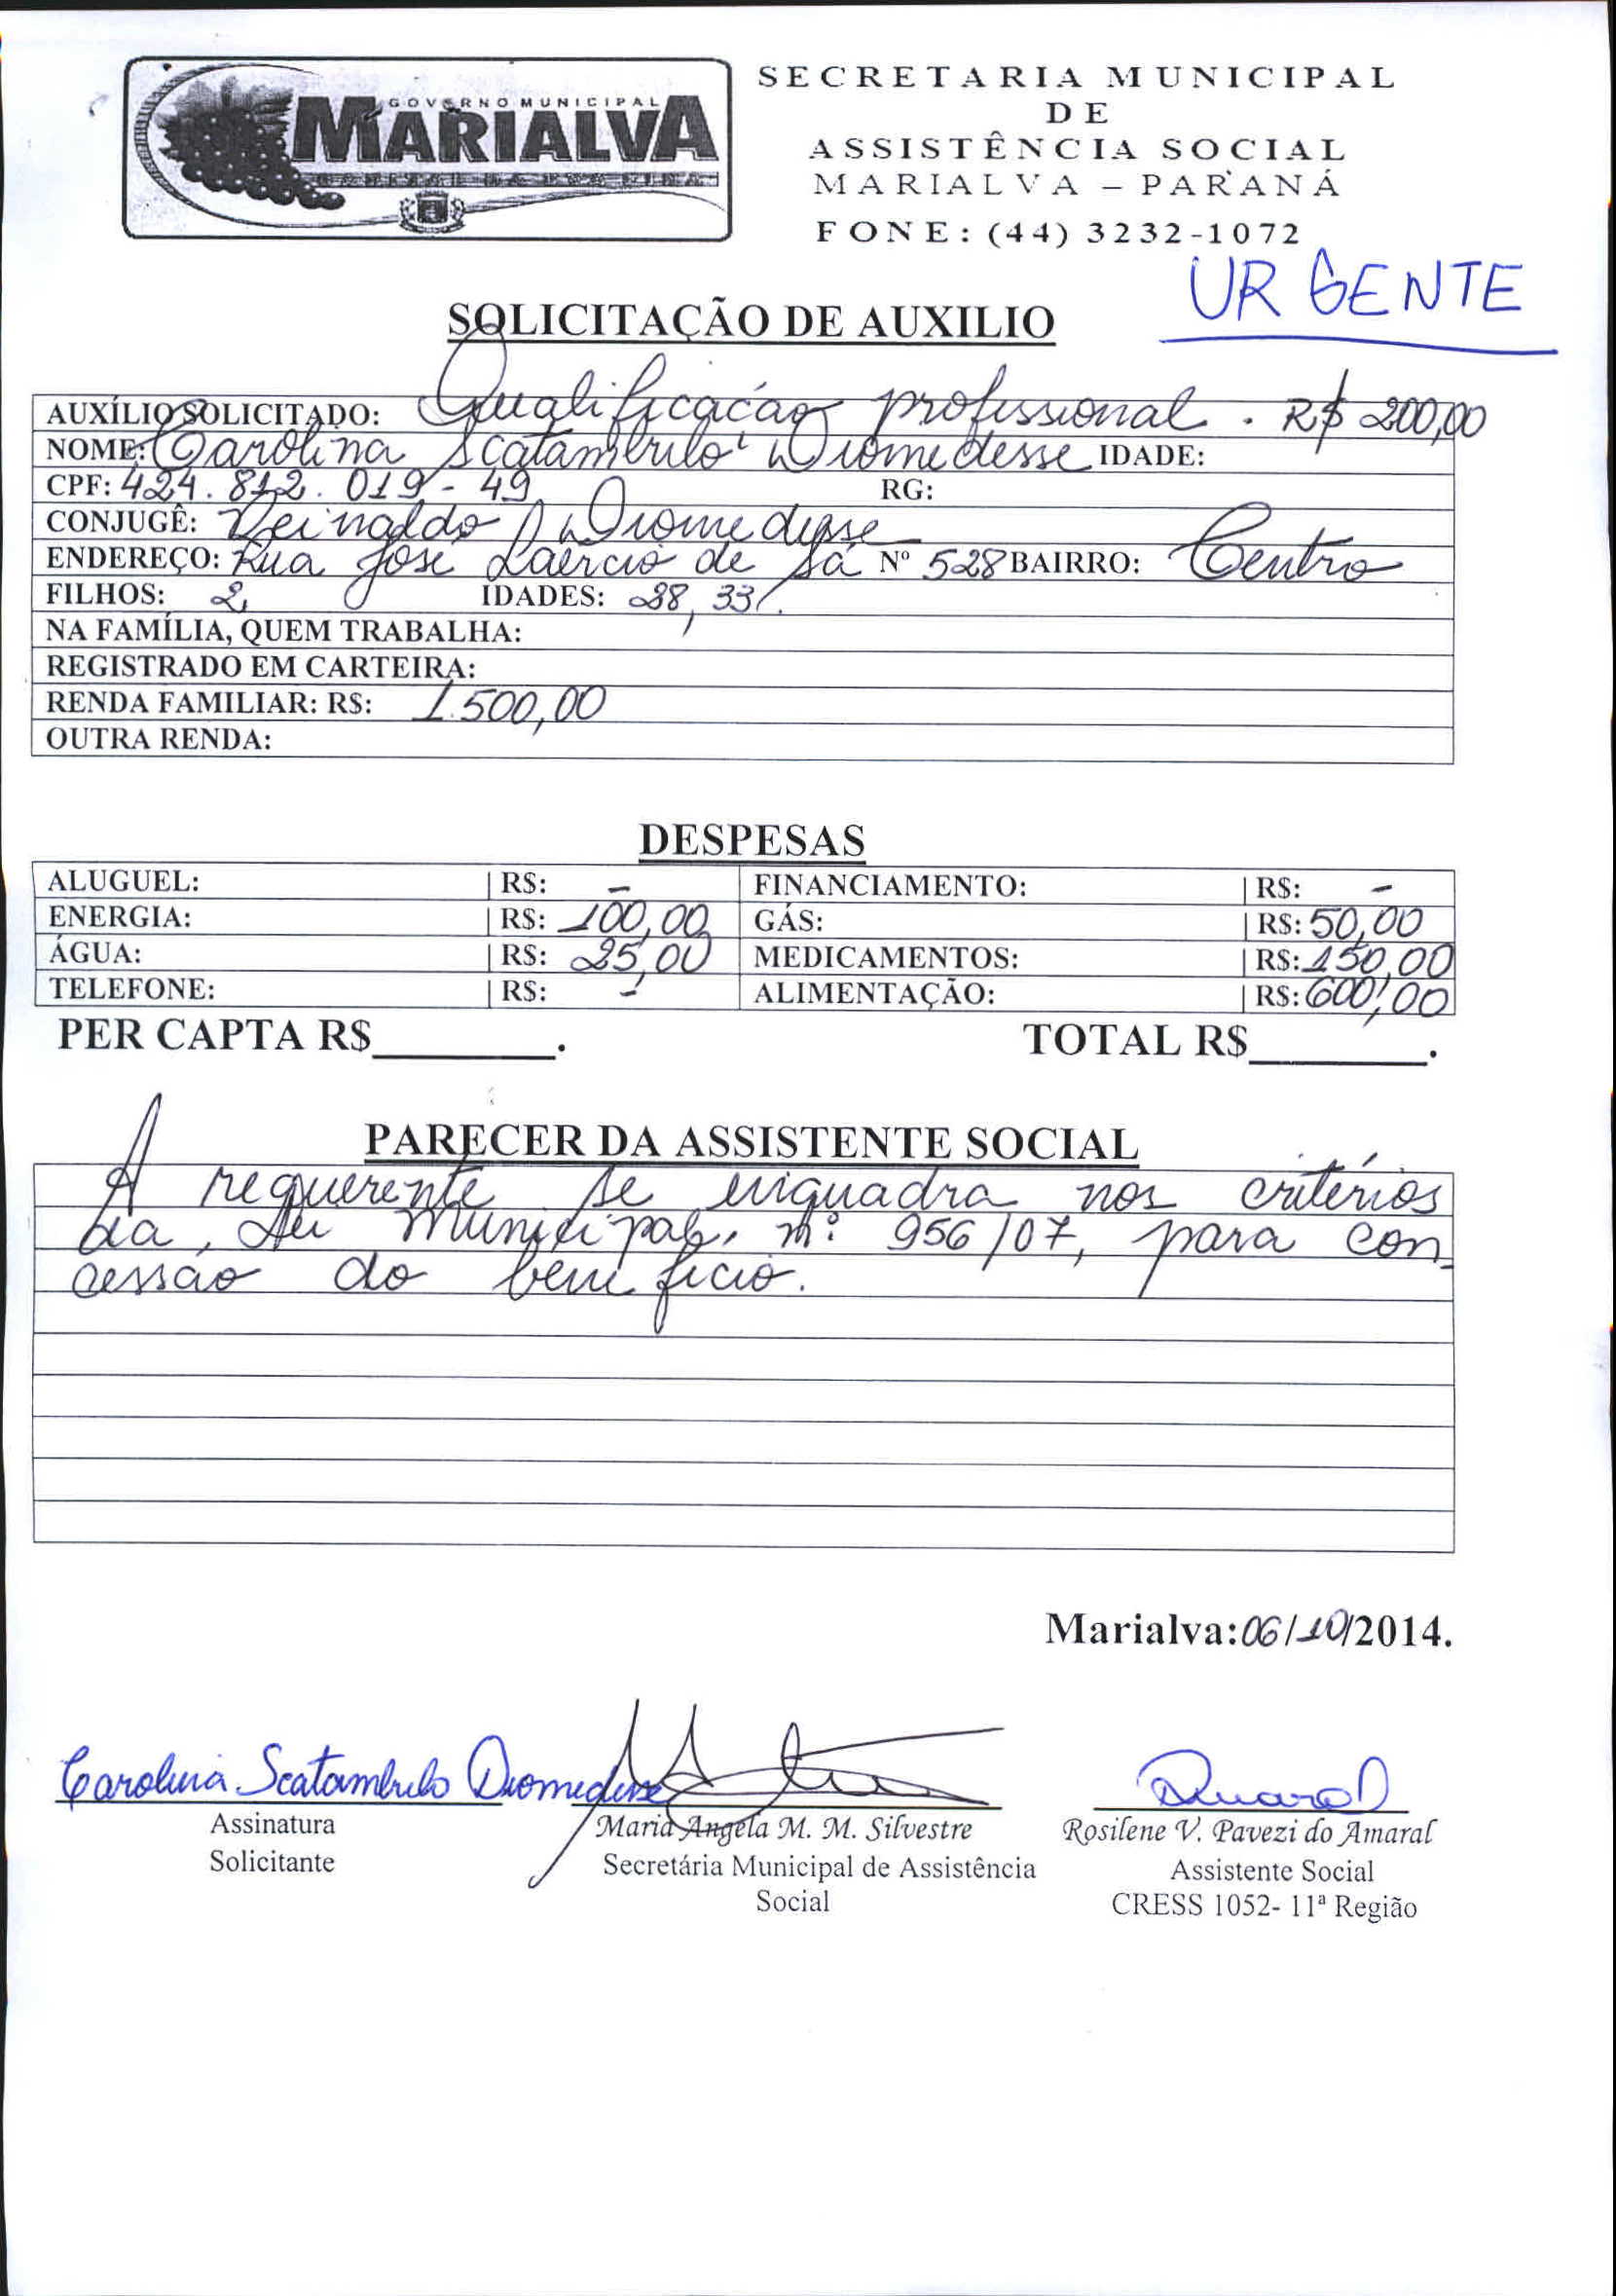 GOVERNO MUNICIPAL
MARIALVA
SECRETARIA MUNICIPAL
DE
ASSISTÊNCIA SOCIAL
MARIALVA – PARANÁ
FONE: (44) 3232-1072
URGENTE
SOLICITAÇÃO DE AUXILIO
AUXÍLIO SOLICITADO: Qualificação profissional. R$ 200,00
NOME: Carolina Scatambulo Diomedesse IDADE:
CPF: 424.812.019-49 RG:
CONJUGÊ: Diomedesse
ENDEREÇO: Rua José Laércio de Sá Nº 528 BAIRRO: Centro
FILHOS: 2 IDADES: 28, 33
NA FAMÍLIA, QUEM TRABALHA:
REGISTRADO EM CARTEIRA:
RENDA FAMILIAR: R$: 1.500,00
OUTRA RENDA:
DESPESAS
ALUGUEL: R$: - FINANCIAMENTO: R$: -
ENERGIA: R$: 100,00 GÁS: R$: 50,00
ÁGUA: R$: 25,00 MEDICAMENTOS: R$: 150,00
TELEFONE: R$: - ALIMENTAÇÃO: R$: 600,00
PER CAPTA R$________. TOTAL R$________.
PARECER DA ASSISTENTE SOCIAL
A requerente se enquadra nos critérios
da, Lei Municipal, nº: 956/07, para con
cessão do benefício.
Marialva: 06/10/2014.
Carolina Scatambulo Diomedesse
Assinatura
Solicitante
Maria Angela M. M. Silvestre
Secretária Municipal de Assistência
Social
Rosilene V. Pavezi do Amaral
Assistente Social
CRESS 1052- 11ª Região